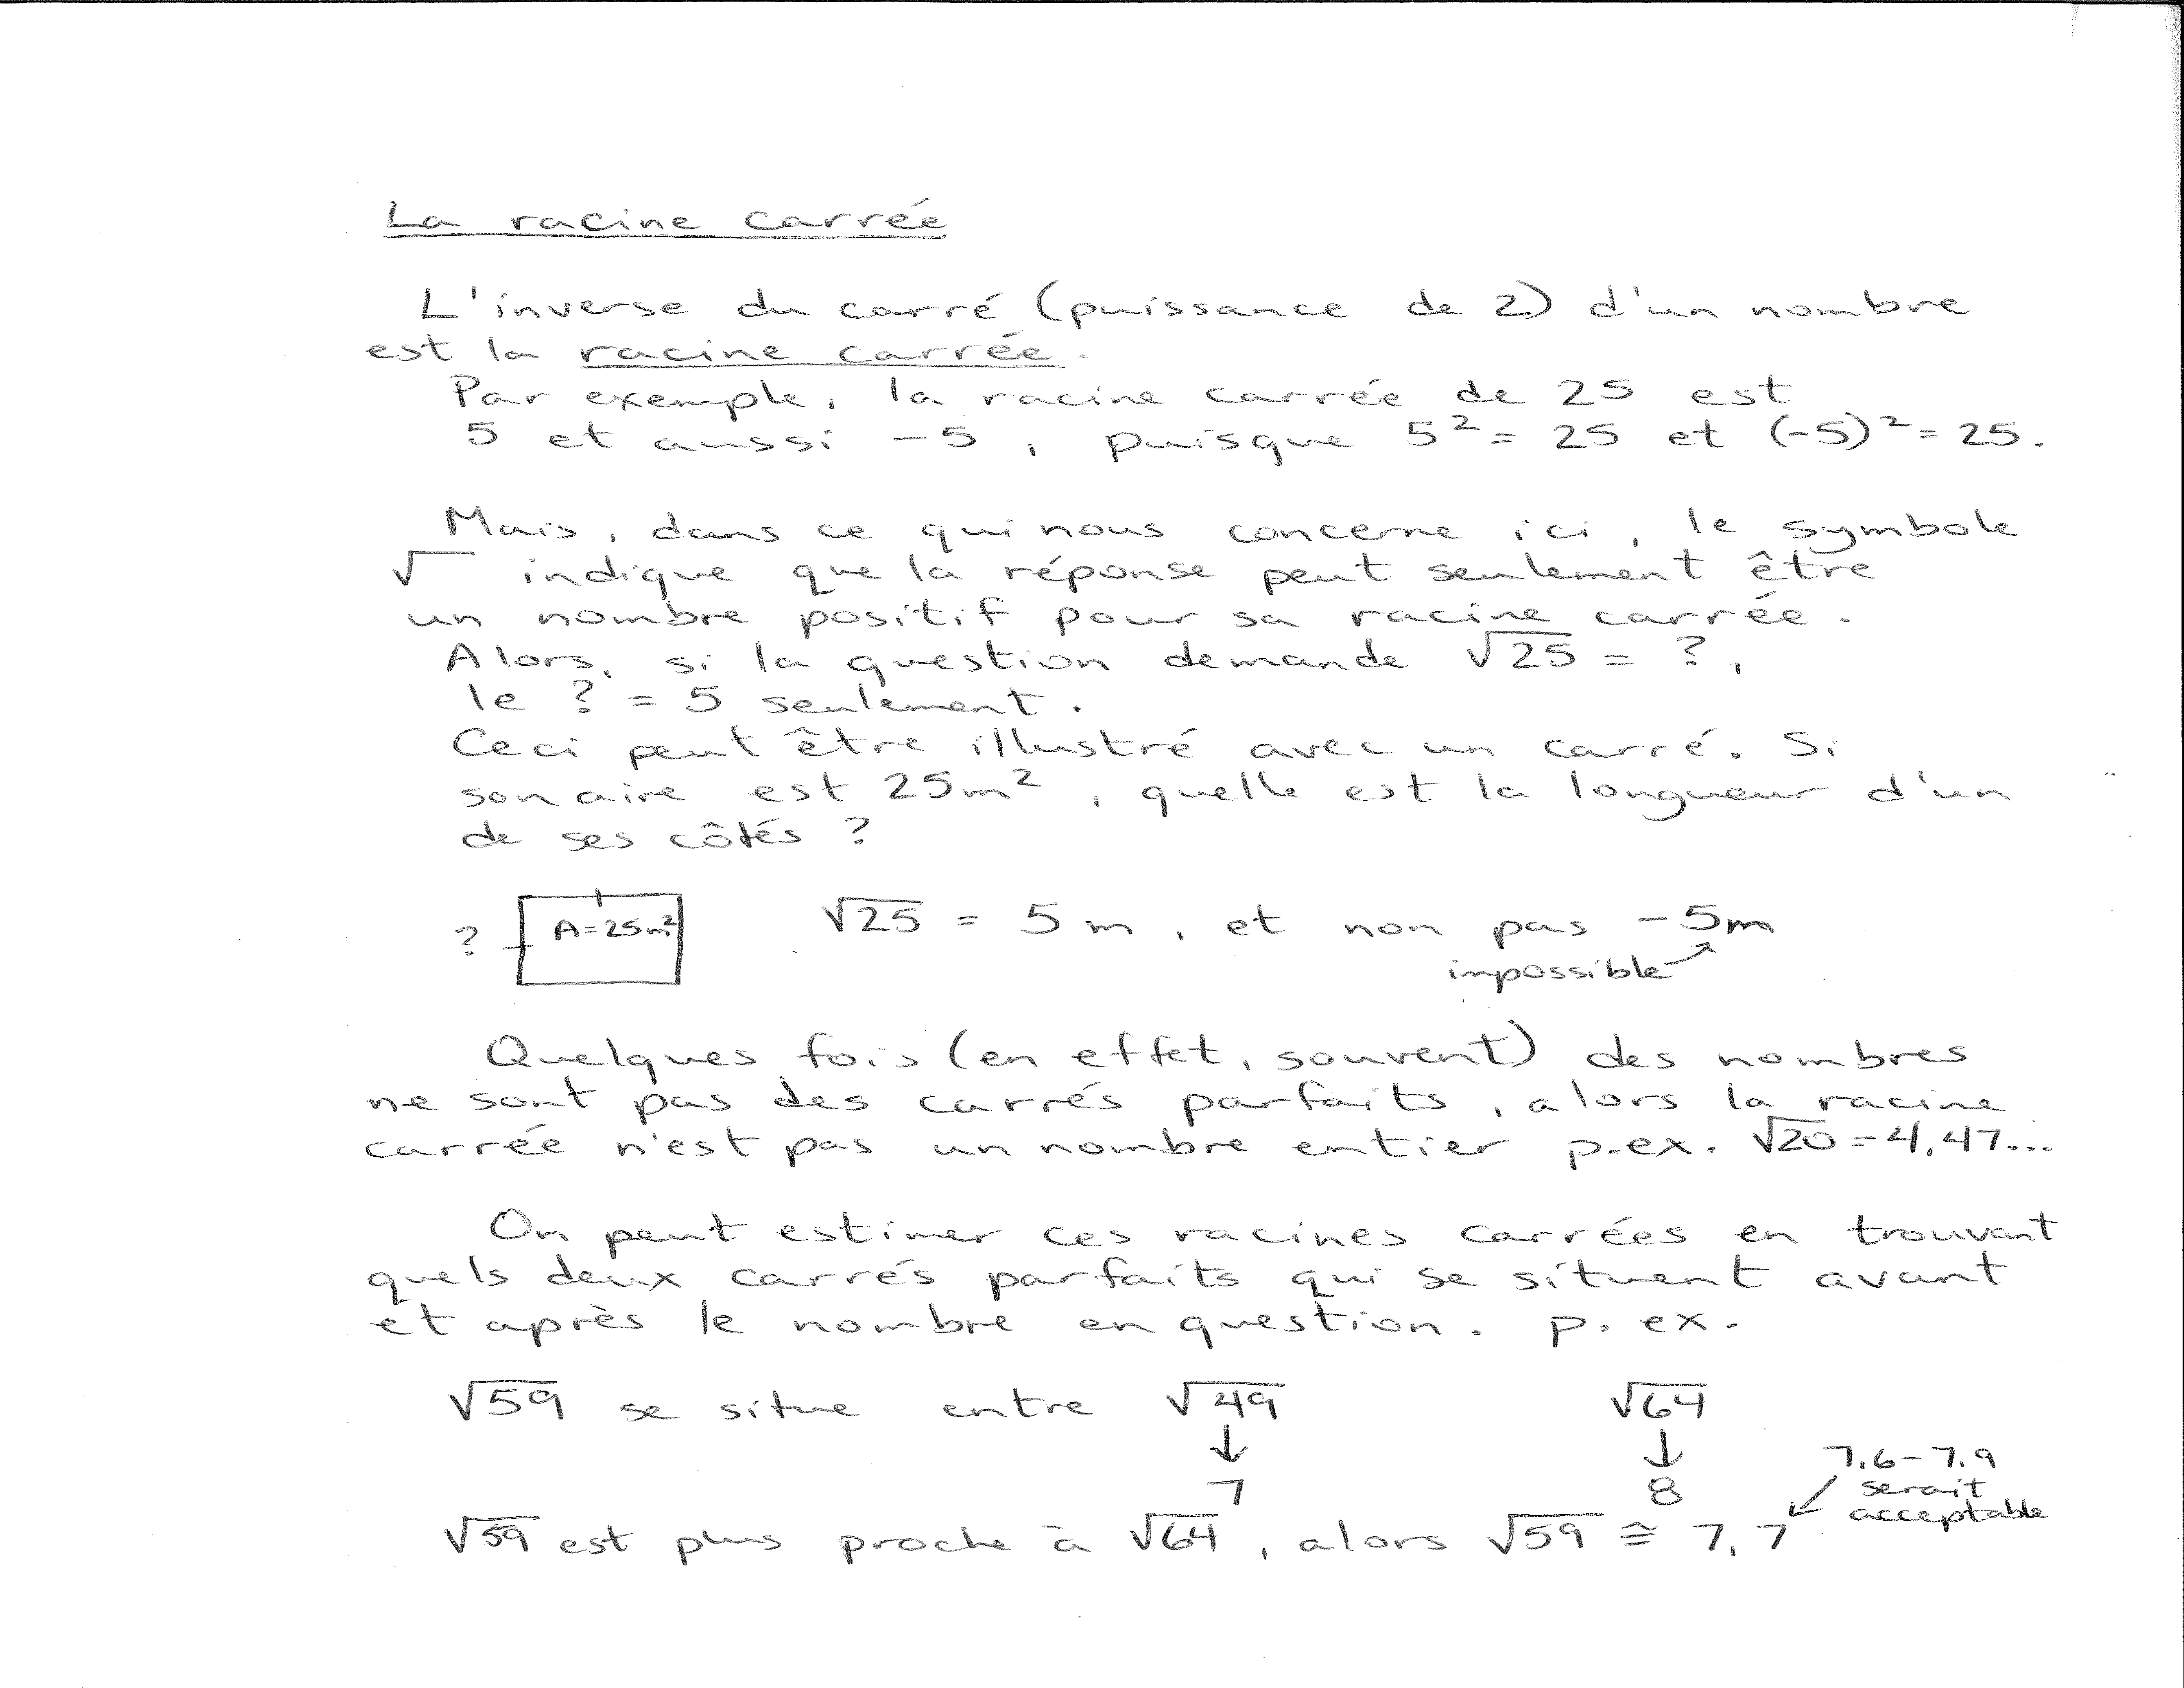 La racine carrée
L'inverse du carré (puissance de 2) d'un nombre
est la racine carrée.
Par exemple, la racine carrée de 25 est
5 et aussi -5, puisque 5² = 25 et (-5)² = 25.
Mais, dans ce qui nous concerne ici, le symbole
√ indique que la réponse peut seulement être
un nombre positif pour sa racine carrée.
Alors, si la question demande √25 = ?,
le ? = 5 seulement.
Ceci peut être illustré avec un carré. Si
son aire est 25m², quelle est la longueur d'un
de ses côtés ?
? A=25m² √25 = 5m, et non pas -5m
impossible
Quelques fois (en effet, souvent) des nombres
ne sont pas des carrés parfaits, alors la racine
carrée n'est pas un nombre entier p.ex. √20 = 4,47...
On peut estimer ces racines carrées en trouvant
quels deux carrés parfaits qui se situent avant
et après le nombre en question. p. ex.
√59 se situe entre √49 √64
↓ ↓
7 8
7,6-7,9
serait
acceptable
√59 est plus proche à √64, alors √59 ≅ 7,7